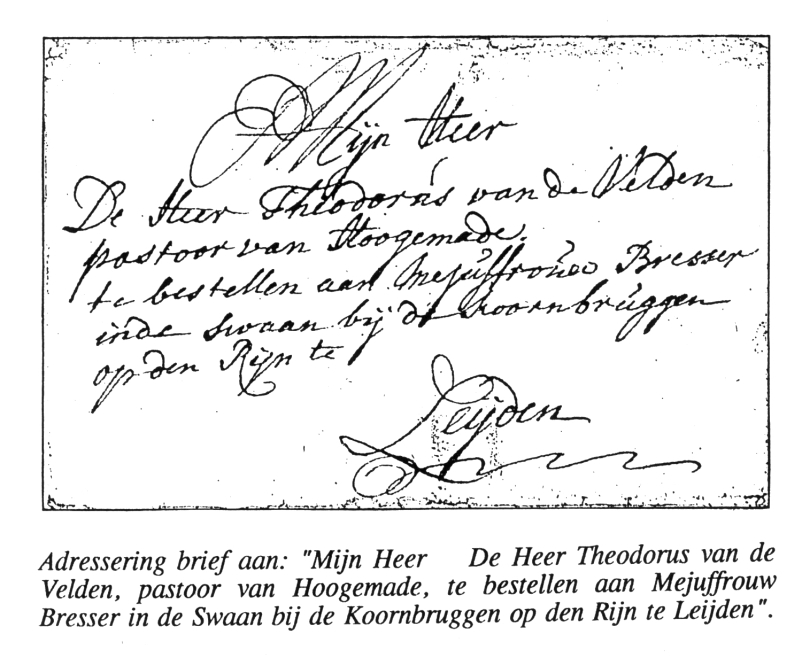 Mijn Heer
De Heer Theodorus van de Velden
pastoor van Hoogemade.
te bestellen aan Mejuffrouw Bresser
inde swaan bij de koornbruggen
op den Rijn te
Leijden
Adressering brief aan: "Mijn Heer De Heer Theodorus van de
Velden, pastoor van Hoogemade, te bestellen aan Mejuffrouw
Bresser in de Swaan bij de Koornbruggen op den Rijn te Leijden".